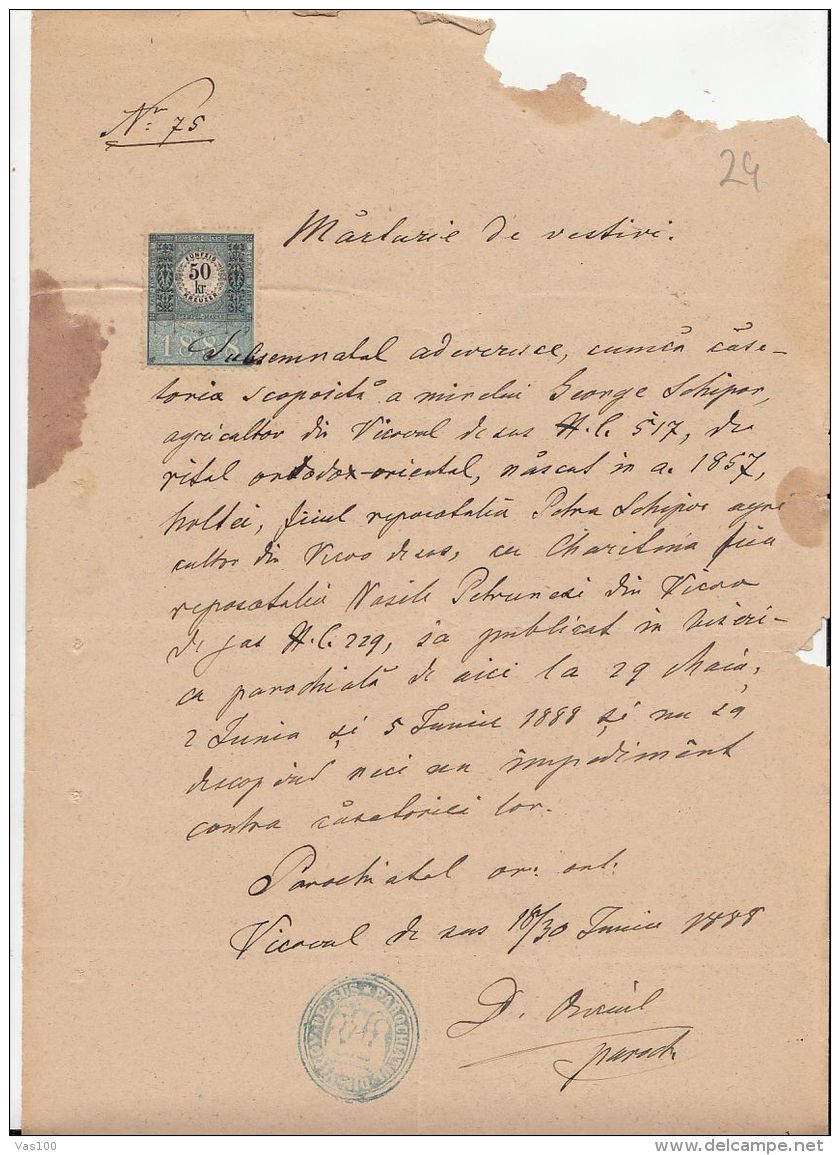 Nr 75
24
Mărturie de vestiri.
FÜNFZIG
50
kr.
KREUZER
STEMPEL-MARKE
188
Subsemnatul adeveresce, cumcă căse-
toria scoposită a mirelui George Schipor,
agricultor din Vicovul de sus N.C. 517, de
ritul ortodox-oriental, născut in a. 1857,
holtei, fiiul reposatului Petra Schipor agri
cultor din Vicov de sus, cu Charitina fiica
reposatului Vasile Petrunesi din Vicov
de sus N.C. 229, sa publicat in biseri-
ca parochială de aici la 29 Maiu,
2 Juniu și 5 Juniu 1888 și nu sa
descoperit nici un impediment
contra căsetoriei lor.
Parochiatul or: ort:
Vicovul de sus 18/30 Juniu 1888
D.
paroch
Vas100
delcampe.net